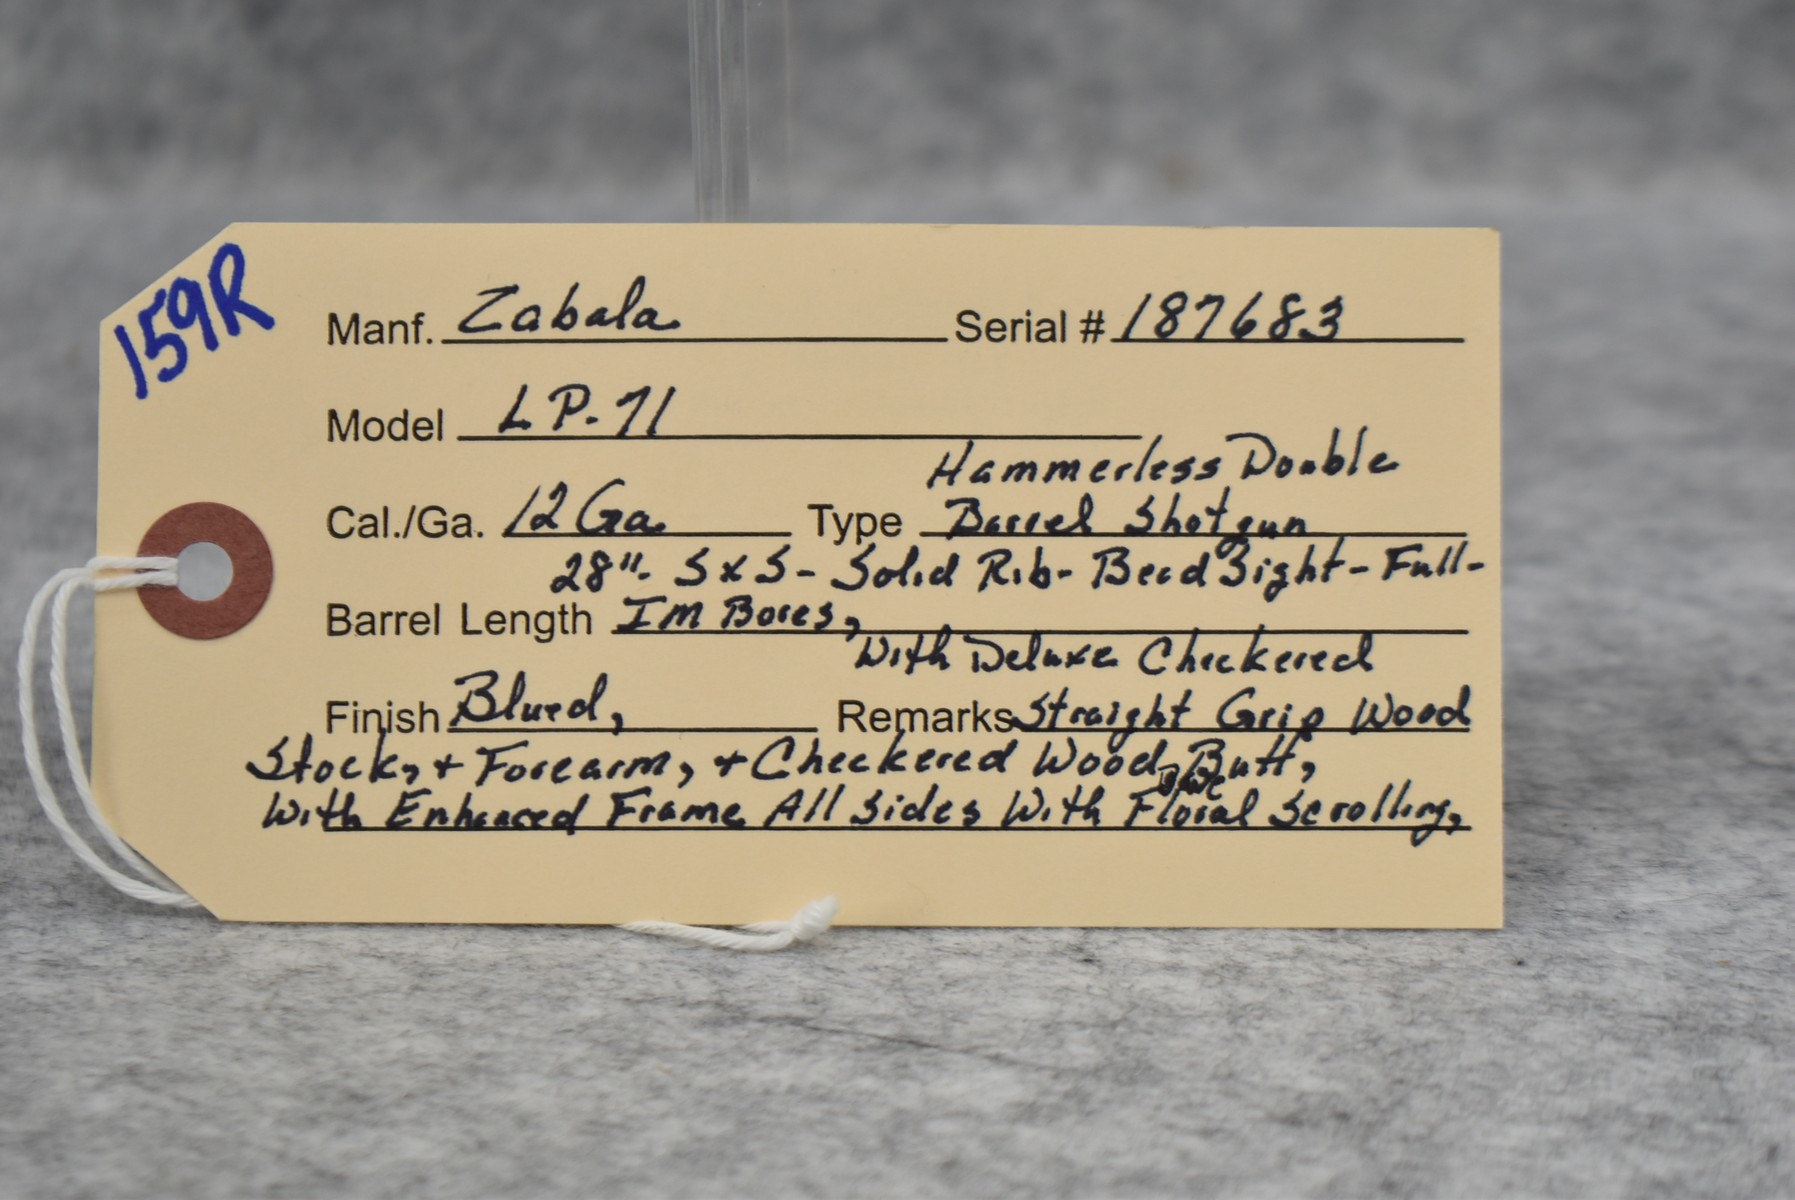 159R
Manf. Zabala Serial # 187683
Model LP-71
Hammerless Double
Cal./Ga. 12 Ga. Type Barrel Shotgun
28"- SxS - Solid Rib - Bead Sight - Full -
Barrel Length IM Bores,
With Deluxe Checkered
Finish Blued, Remarks Straight Grip Wood
Stock, + Forearm, + Checkered Wood Butt,
With Enhanced Frame All Sides With Floral Scrolling,